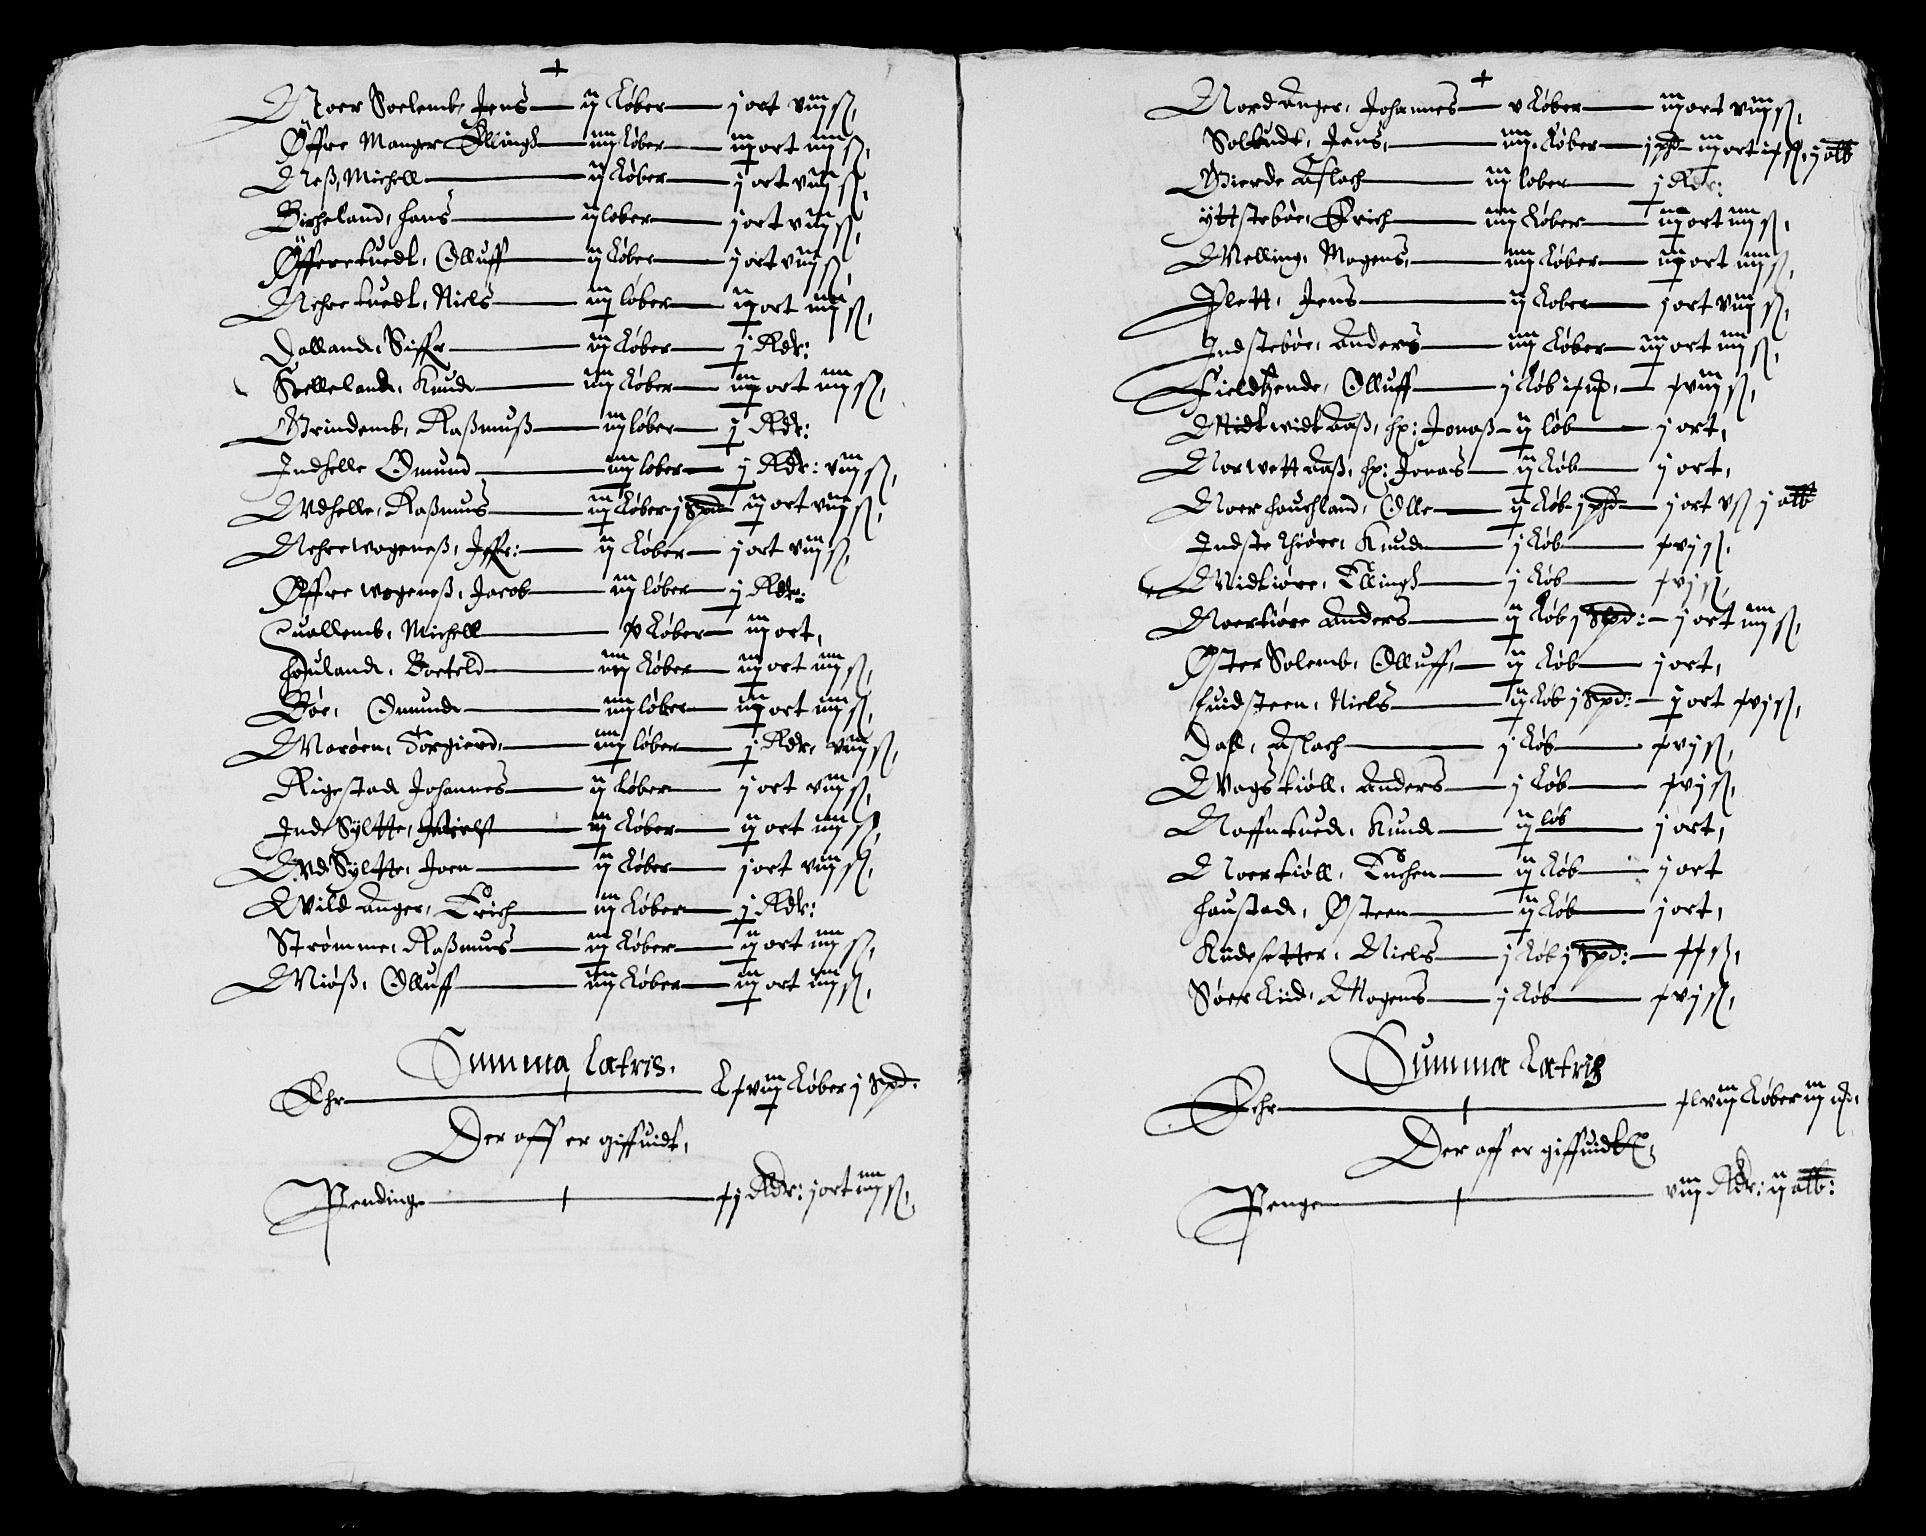 Noer Soelemb, Jens — ij Løber — j ort viij ß,
Øffre Manger Ellingh — iiij Løber — iij ort iiij ß,
Neß, Michell — ij Løber — j ort viij ß,
Bircheland, Hans — ij løber — j ort viij ß,
Øffretuedt, Olluff — ij Løber — j ort viij ß,
Nehre tuedt, Niels — iij løber — ij ort iiij ß,
Dalland, Siffr — iij Løber — j Rdr:
Selleland, Knud — iiij Løber — iij ort iiij ß,
Grindemb, Raßmuß — iij løber — j Rdr:
Indhelle Omund — iiij løber — j Rdr: viij ß,
Udhelle, Raßmus — iij Løber j Spd — ij ort viij ß,
Nehre wogeneß, Iffr: — ij Løber — j ort viij ß,
Øffre wogeneß, Jacob — iij løber — j Rdr:
Michell — Løber — iij ort,
Houland, Botteld — iiij Løber — iij ort iiij ß,
Bøe, Omund — iiij løber — iij ort iiij ß,
Marøen, Torgierd, — iiij løber — j Rdr, viij ß,
Rigestad Johannes — ij Løber — j ort viij ß,
Ind Syltte, — iij Løber — ij ort iiij ß,
Ud Syltte, Joen — ij Løber — j ort viij ß,
Wild Anger, Erich — iij Løber — j Rdr:
Strømme, Raßmus — iij Løber — ij ort iiij ß,
Miøß, Olluff — iiij Løber — iij ort iiij ß,
Summa Latris.
Ehr — Lxviij Løber j Spd:
Der aff er giffuidt,
Pending — xj Rdr: j ort iiij ß,
Nord Anger, Johannes — v Løber — iij ort viij ß,
Solbudt, Jens, — iiij Løber j pd — iij ort j alb
Gierde Aslach — iij løber — j Rdr:
Yttstebøe, Erich — iiij Løber — iij ort iiij ß,
Melling, Mogens, — iiij Løber — iij ort iiij ß,
Plett, Jens — ij Løber — j ort viij ß,
Indstebøe, Anders — iiij Løber — iij ort iiij ß,
Olluff — j Løb — xviij ß,
Midt widt Aaß, hr: Jonaß — ij løb — j ort,
Norwett Aaß, hr: Jonas — ij Løb — j ort,
Noer Hauchland, Olle — ij Løb j pd — j ort vß j alb
Indste Kiøre, Knud — j Løb — xvj ß,
Midtiøre, Ellingh — j Løb — xvj ß,
Noerkiøre Anders — ij Løb j Spd: — j ort iiij ß,
Øster Solemb, Olluff, — ij Løb — j ort,
Huidsteen, Niels — ij Løb j Spd: — j ort xvj ß,
Dall, Aslach — j Løb — xvj ß,
Vogstiøll, Anders — j Løb — xvj ß,
Knud — ij løb — j ort,
Noertiøll, — ij Løb — j ort
Haustad, Østeen — ij Løb — j ort,
Kudesetter, Niels — j Løb j Spd: — xx ß,
Søer Liid, Mogens — j Løb — xvj ß,
Summa Latris
Eehr — xlviij Løber iij
Der aff er giffuidt,
Penge — viij Rdr: ij alb: